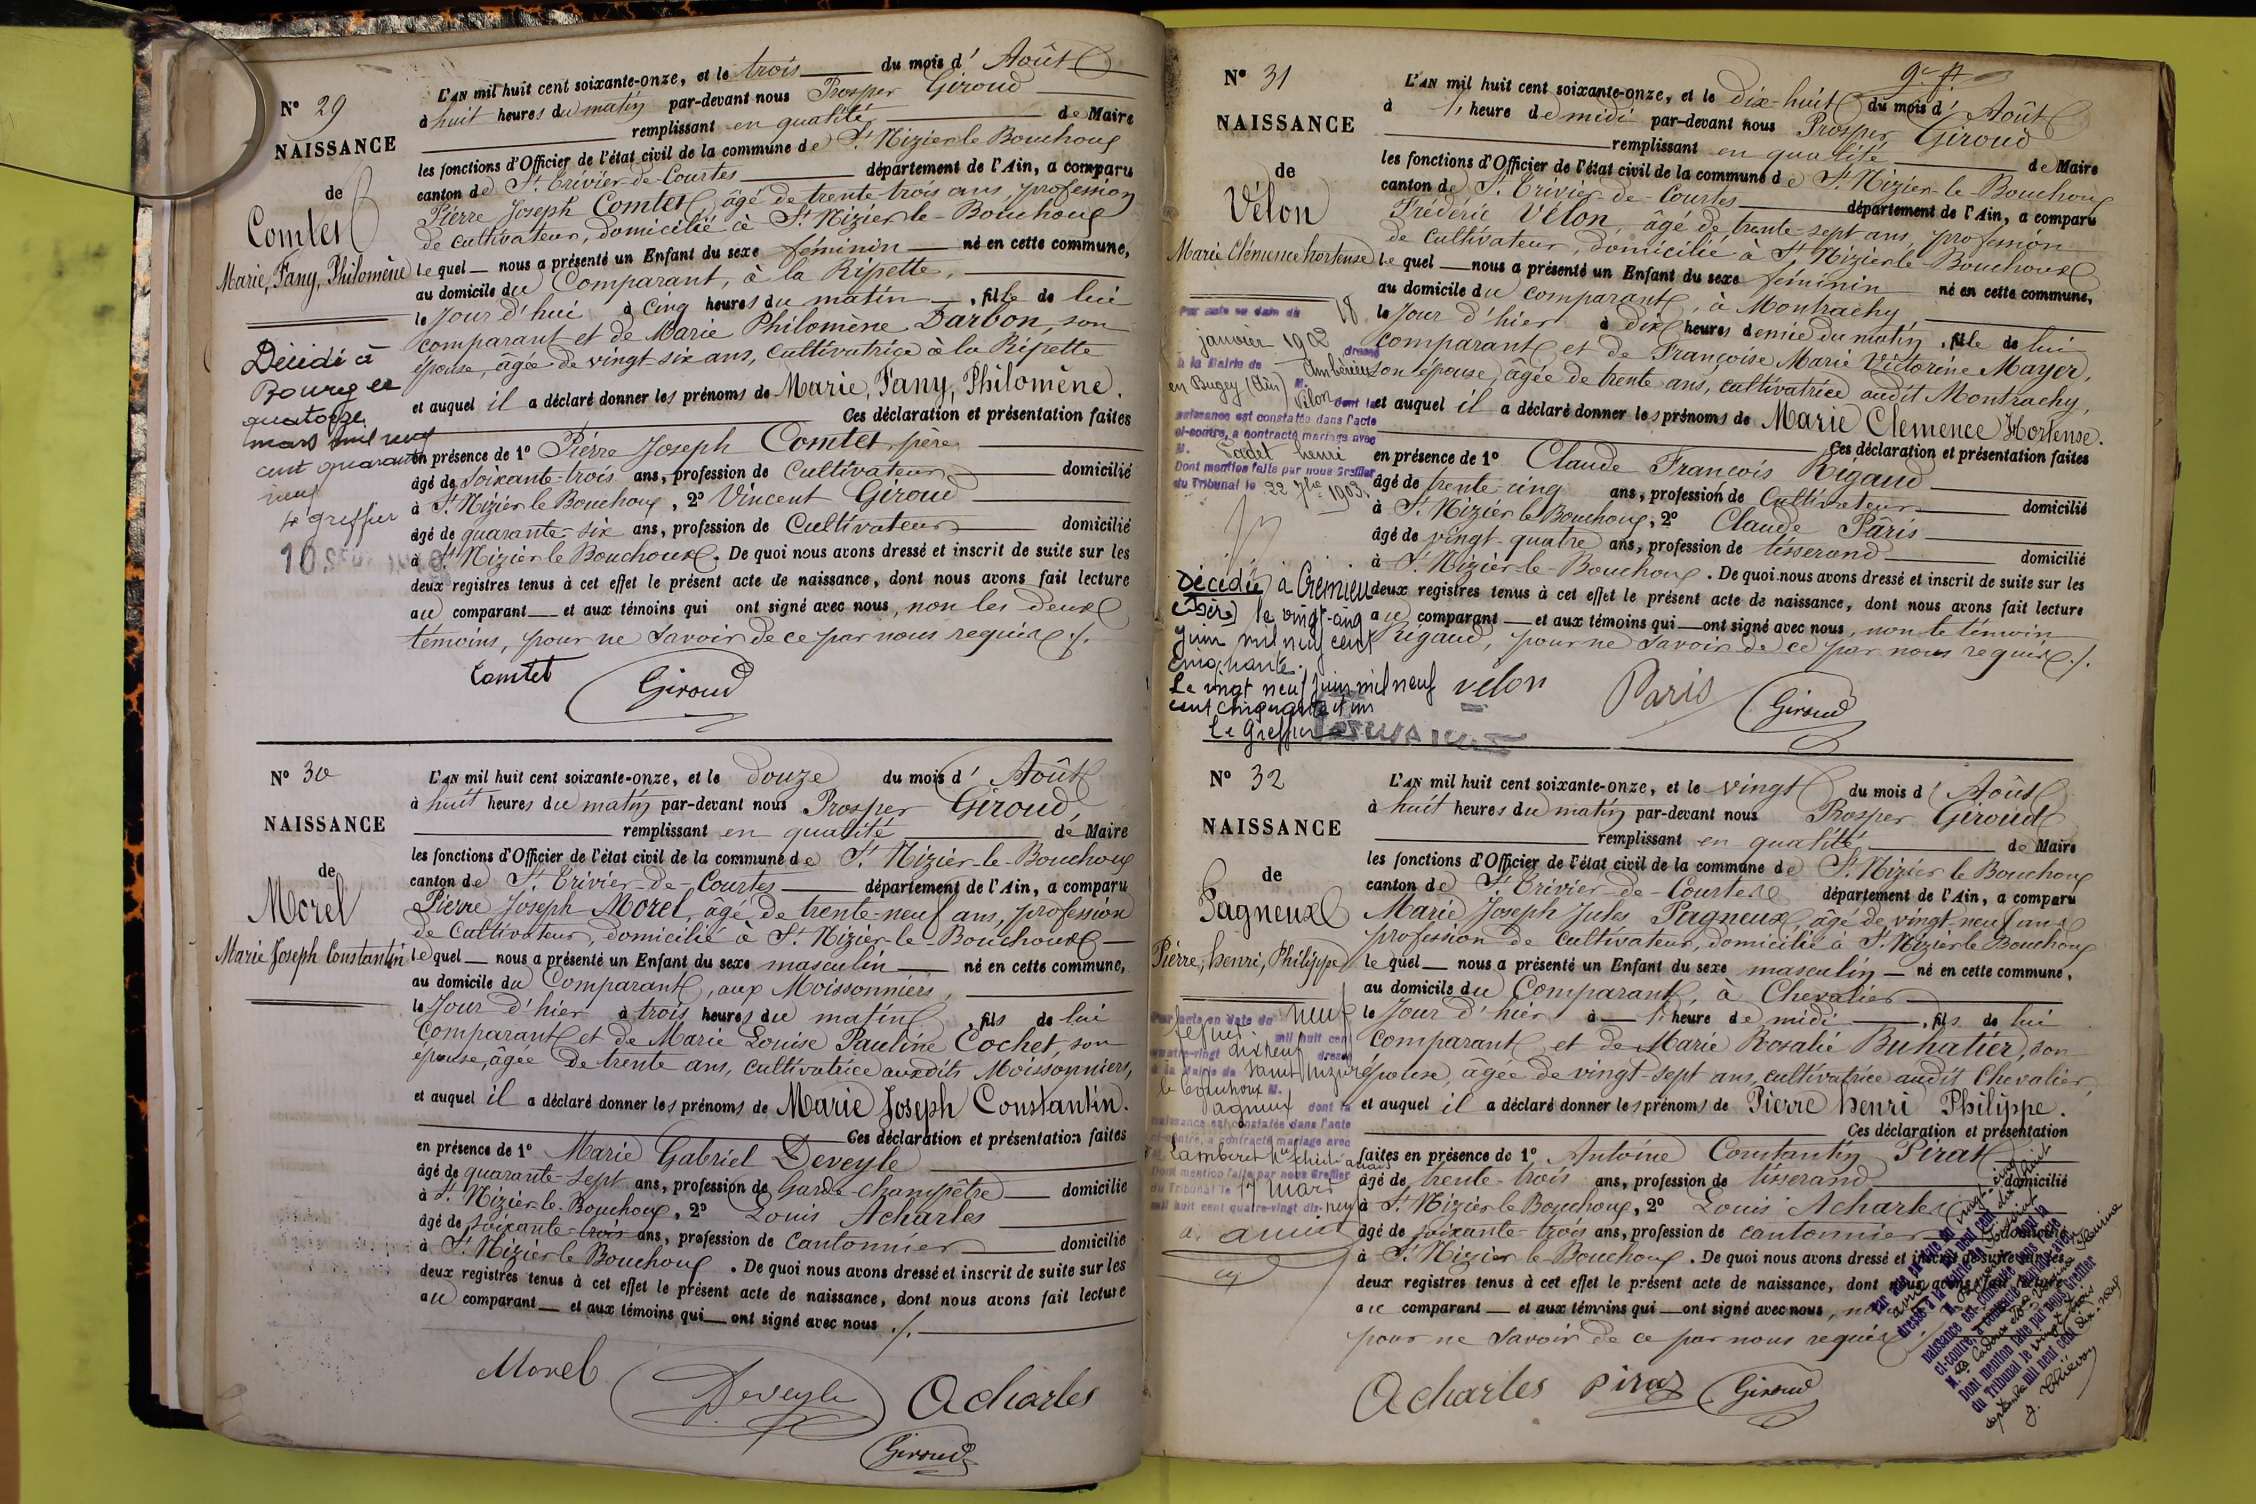 N° 29
NAISSANCE
de
Comtet
Marie, Fany, Philomène
Décédé à
Bourg le
quatorze
mars mil neuf
cent quarante
neuf
Le greffier
L'AN mil huit cent soixante-onze, et le trois du mois d' Août
à huit heures du matin par-devant nous Prosper Giroud
remplissant en qualité de Maire
les fonctions d'Officier de l'état civil de la commune de St Nizier le Bouchoux
canton de St Trivier-de-Courtes département de l'Ain, a comparu
Pierre Joseph Comtet, âgé de trente-trois ans, profession
de cultivateur, domicilié à St Nizier-le-Bouchoux
lequel nous a présenté un Enfant du sexe féminin né en cette commune,
au domicile du Comparant, à la Ripette,
le jour d'hui à cinq heures du matin, fille de lui
comparant et de Marie Philomène Darbon, son
épouse, âgée de vingt-six ans, cultivatrice à la Ripette
et auquel il a déclaré donner les prénoms de Marie, Fany, Philomène.
Ces déclaration et présentation faites
en présence de 1° Pierre Joseph Comtet père
âgé de soixante-trois ans, profession de Cultivateur domicilié
à St Nizier le Bouchoux, 2° Vincent Giroud
âgé de quarante-six ans, profession de Cultivateur domicilié
à St Nizier le Bouchoux. De quoi nous avons dressé et inscrit de suite sur les
deux registres tenus à cet effet le présent acte de naissance, dont nous avons fait lecture
au comparant et aux témoins qui ont signé avec nous, non les deux
témoins, pour ne savoir de ce par nous requis ./.
Comtet
Giroud
N° 30
NAISSANCE
de
Morel
Marie Joseph Constantin
L'AN mil huit cent soixante-onze, et le douze du mois d' Août
à huit heures du matin par-devant nous Prosper Giroud,
remplissant en qualité de Maire
les fonctions d'Officier de l'état civil de la commune de St Nizier-le-Bouchoux
canton de St Trivier-de-Courtes département de l'Ain, a comparu
Pierre Joseph Morel, âgé de trente-neuf ans, profession
de Cultivateur, domicilié à St Nizier-le-Bouchoux
lequel nous a présenté un Enfant du sexe masculin né en cette commune,
au domicile du Comparant, aux Moissonniers,
le Jour d'hier à trois heures du matin, fils de lui
Comparant et de Marie Louise Pauline Cochet, son
épouse, âgée de trente ans, cultivatrice auxdits Moissonniers,
et auquel il a déclaré donner les prénoms de Marie Joseph Constantin.
Ces déclaration et présentation faites
en présence de 1° Marie Gabriel Deveyle
âgé de quarante-sept ans, profession de Garde-champêtre domicilié
à St Nizier-le-Bouchoux, 2° Louis Acharles
âgé de soixante-trois ans, profession de Cantonnier domicilié
à St Nizier le Bouchoux. De quoi nous avons dressé et inscrit de suite sur les
deux registres tenus à cet effet le présent acte de naissance, dont nous avons fait lecture
au comparant et aux témoins qui ont signé avec nous ./.
Morel
Deveyle
Acharles
Giroud
N° 31
NAISSANCE
de
Vélon
Marie Clémence hortense
Par acte en date du 18
janvier 1902 dressé
à la Mairie de Ambérieu
en Bugey (Ain) M.
Vélon dont la
naissance est constatée dans l'acte
ci-contre, a contracté mariage avec
M. Cadet henri
Dont mention faite par nous Greffier
du Tribunal le 22 7bre 1903.
Décédée à Crémieu
(Isère) le vingt-cinq
juin mil neuf cent
cinquante.
Le vingt neuf juin mil neuf
cent cinquante et un
Le Greffier
L'AN mil huit cent soixante-onze, et le dix-huit du mois d' Août
à 1' heure de midi par-devant nous Prosper Giroud
remplissant en qualité de Maire
les fonctions d'Officier de l'état civil de la commune de St Nizier-le-Bouchoux
canton de St Trivier-de-Courtes département de l'Ain, a comparu
Frédéric Vélon, âgé de trente-sept ans, profession
de cultivateur, domicilié à St Nizier le Bouchoux
lequel nous a présenté un Enfant du sexe féminin né en cette commune,
au domicile du comparant, à Montrachy
le Jour d'hier à dix heures demie du matin, fille de lui
comparant et de Françoise Marie Victorine Mayer,
son épouse, âgée de trente ans, cultivatrice audit Montrachy,
et auquel il a déclaré donner les prénoms de Marie Clemence Hortense.
Ces déclaration et présentation faites
en présence de 1° Claude François Rigaud
âgé de trente-cinq ans, profession de Cultivateur domicilié
à St Nizier le Bouchoux, 2° Claude Pâris
âgé de vingt-quatre ans, profession de tisserand domicilié
à St Nizier-le-Bouchoux. De quoi nous avons dressé et inscrit de suite sur les
deux registres tenus à cet effet le présent acte de naissance, dont nous avons fait lecture
au comparant et aux témoins qui ont signé avec nous, non le témoin
Rigaud, pour ne savoir de ce par nous requis ./.
vélon
Paris
Giroud
N° 32
NAISSANCE
de
Pagneux
Pierre, henri, Philippe
Par acte en date du neuf
février mil huit cent
quatre-vingt dix neuf dressé
à la Mairie de Saint Nizier
le Bouchoux M.
Pagneux dont la
naissance est constatée dans l'acte
ci-contre, a contracté mariage avec
Lamberet
Dont mention faite par nous Greffier
du Tribunal le 17 mars
mil huit cent quatre-vingt dix-neuf
L'AN mil huit cent soixante-onze, et le vingt du mois d' Août
à huit heures du matin par-devant nous Prosper Giroud
remplissant en qualité de Maire
les fonctions d'Officier de l'état civil de la commune de St Nizier le Bouchoux
canton de St Trivier-de-Courtes département de l'Ain, a comparu
Marie Joseph Jules Pagneux, âgé de vingt-neuf ans
profession de cultivateur, domicilié à St Nizier le Bouchoux
lequel nous a présenté un Enfant du sexe masculin né en cette commune,
au domicile du Comparant, à Chevalier
le Jour d'hier à 1' heure de midi, fils de lui
comparant et de Marie Rosalie Buhatier, son
épouse, âgée de vingt-sept ans, cultivatrice audit Chevalier,
et auquel il a déclaré donner les prénoms de Pierre henri Philippe.
Ces déclaration et présentation
faites en présence de 1° Antoine Constantin Pirat
âgé de trente-trois ans, profession de tisserand domicilié
à St Nizier le Bouchoux, 2° Louis Acharles
âgé de soixante-trois ans, profession de cantonnier domicilié
à St Nizier le Bouchoux. De quoi nous avons dressé et inscrit de suite sur les
deux registres tenus à cet effet le présent acte de naissance, dont nous avons fait lecture
au comparant et aux témoins qui ont signé avec nous,
pour ne savoir de ce par nous requis
Par acte en date du vingt-cinq
avril mil neuf cent dix huit
dressé à la Mairie de
naissance est constatée dans l'acte
ci-contre, a contracté mariage avec
Dont mention faite par nous Greffier
du Tribunal le vingt trois
septembre mil neuf cent dix-neuf
Acharles
Pirat
Giroud